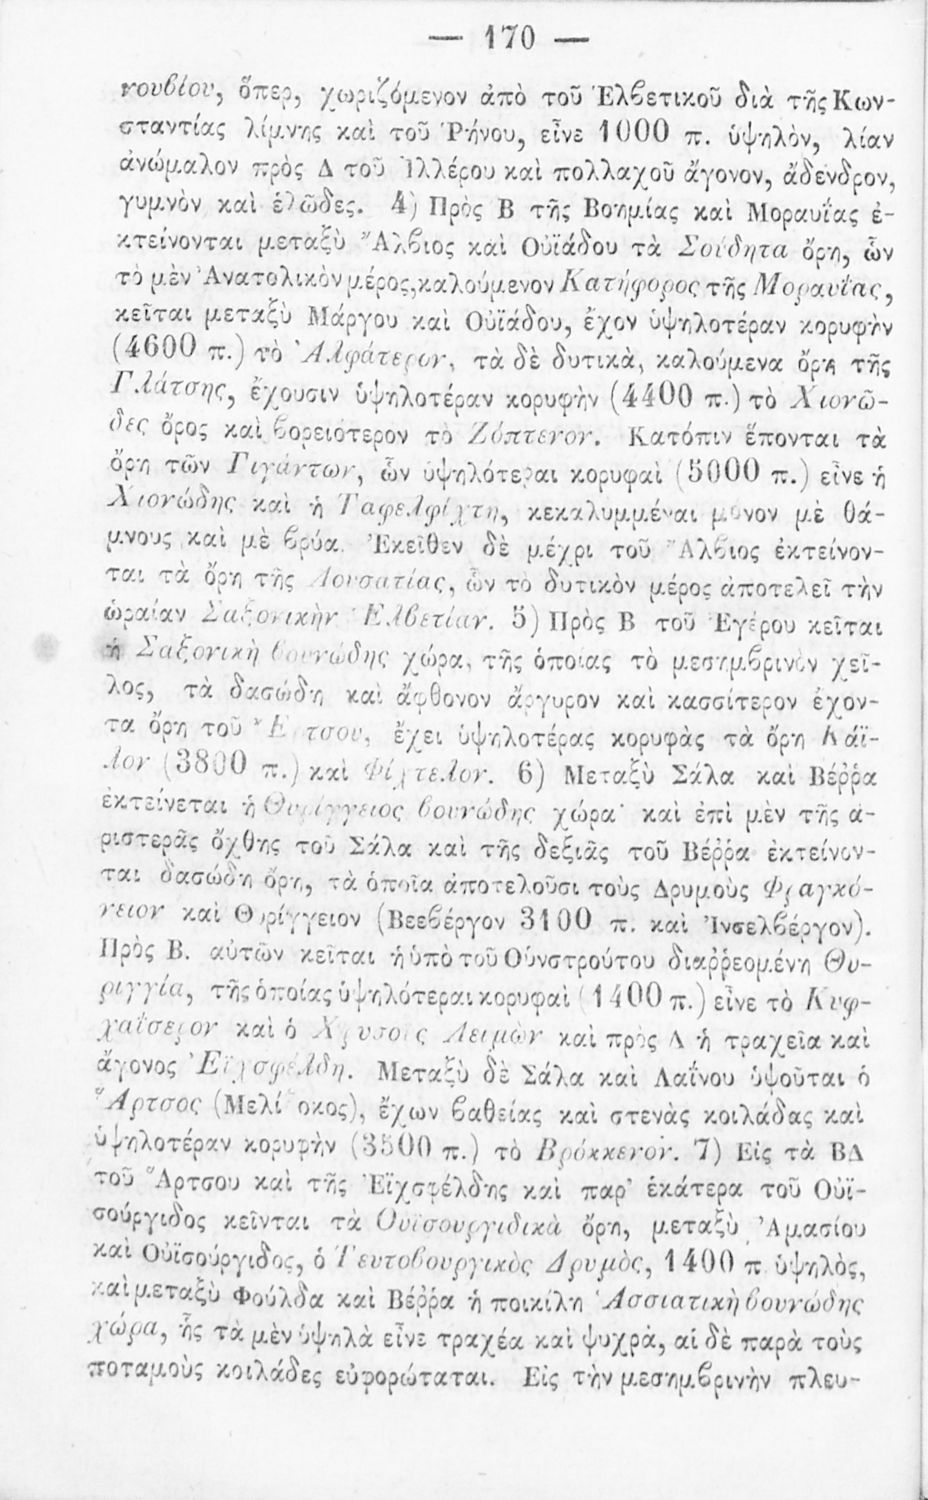 — 170 —
νουβίου, ὅπερ, χωριζόμενον ἀπὸ τοῦ Ἑλβετικοῦ διὰ τῆς Κων-
σταντίας λίμνης καὶ τοῦ Ῥήνου, εἶνε 1000 π. ὑψηλὸν, λίαν
ἀνώμαλον πρὸς Δ τοῦ Ἰλλέρου καὶ πολλαχοῦ ἄγονον, ἄδενδρον,
γυμνὸν καὶ ἑλῶδες. 4) Πρὸς Β τῆς Βοημίας καὶ Μοραυΐας ἐ-
κτείνονται μεταξὺ Ἄλβιος καὶ Οὐϊάδου τὰ Σούδητα ὄρη, ὧν
τὸ μὲν Ἀνατολικὸν μέρος, καλούμενον Κατήφορος τῆς Μοραυΐας,
κεῖται μεταξὺ Μάργου καὶ Οὐϊάδου, ἔχον ὑψηλοτέραν κορυφὴν
(4600 π.) τὸ Ἀλφάτερον, τὰ δὲ δυτικὰ, καλούμενα ὄρη τῆς
Γλάτσης, ἔχουσιν ὑψηλοτέραν κορυφὴν (4400 π.) τὸ Χιονῶ-
δες ὄρος καὶ βορειότερον τὸ Ζόπτενον. Κατόπιν ἕπονται τὰ
ὄρη τῶν Γιγάντων, ὧν ὑψηλότεραι κορυφαὶ (5000 π.) εἶνε ἡ
Χιονώδης καὶ ἡ Ταφελφίχτη, κεκαλυμμέναι μόνον μὲ θά-
μνους καὶ μὲ βρύα. Ἐκεῖθεν δὲ μέχρι τοῦ Ἄλβιος ἐκτείνον-
ται τὰ ὄρη τῆς Λουσατίας, ὧν τὸ δυτικὸν μέρος ἀποτελεῖ τὴν
ὡραίαν Σαξονικὴν Ἑλβετίαν. 5) Πρὸς Β τοῦ Ἐγέρου κεῖται
ἡ Σαξονικὴ βουνώδης χώρα, τῆς ὁποίας τὸ μεσημβρινὸν χεῖ-
λος, τὰ δασώδη καὶ ἄφθονον ἄργυρον καὶ κασσίτερον ἔχον-
τα ὄρη τοῦ ἔχει ὑψηλοτέρας κορυφὰς τὰ ὄρη Κάϊ-
λον (3800 π.) καὶ Φίχτελον. 6) Μεταξὺ Σάλα καὶ Βέῤῥα
ἐκτείνεται ἡ Θυρίγγειος βουνώδης χώρα· καὶ ἐπὶ μὲν τῆς ἀ-
ριστερᾶς ὄχθης τοῦ Σάλα καὶ τῆς δεξιᾶς τοῦ Βέῤῥα ἐκτείνον-
ται δασώδη ὄρη, τὰ ὁποῖα ἀποτελοῦσι τοὺς Δρυμοὺς Φραγκό-
νειον καὶ Θυρίγγειον (Βεεβέργον 3100 π. καὶ Ἰνσελβέργον).
Πρὸς Β. αὐτῶν κεῖται ἡ ὑπὸ τοῦ Οὐνστρούτου διαῤῥεομένη Θυ-
ριγγία, τῆς ὁποίας ὑψηλότεραι κορυφαὶ (1400 π.) εἶνε τὸ Κυφ-
χαΐσερον καὶ ὁ Χρυσοῦς Λειμὼν καὶ πρὸς Δ ἡ τραχεῖα καὶ
ἄγονος Ἐϊχσφέλδη. Μεταξὺ δὲ Σάλα καὶ Λαΐνου ὑψοῦται ὁ
Ἄρτσος (Μελίβοκος), ἔχων βαθείας καὶ στενὰς κοιλάδας καὶ
ὑψηλοτέραν κορυφὴν (3500 π.) τὸ Βρόκκενον. 7) Εἰς τὰ ΒΔ
τοῦ Ἄρτσου καὶ τῆς Ἐϊχσφέλδης καὶ παρ' ἑκάτερα τοῦ Οὐϊ-
σούργιδος κεῖνται τὰ Οὐϊσουργιδικὰ ὄρη, μεταξὺ Ἀμασίου
καὶ Οὐϊσούργιδος, ὁ Τευτοβουργικὸς Δρυμὸς, 1400 π. ὑψηλὸς,
καὶ μεταξὺ Φούλδα καὶ Βέῤῥα ἡ ποικίλη Ἁσσιατικὴ βουνώδης
χώρα, ἧς τὰ μὲν ὑψηλὰ εἶνε τραχέα καὶ ψυχρὰ, αἱ δὲ παρὰ τοὺς
ποταμοὺς κοιλάδες εὐφορώταται. Εἰς τὴν μεσημβρινὴν πλευ-